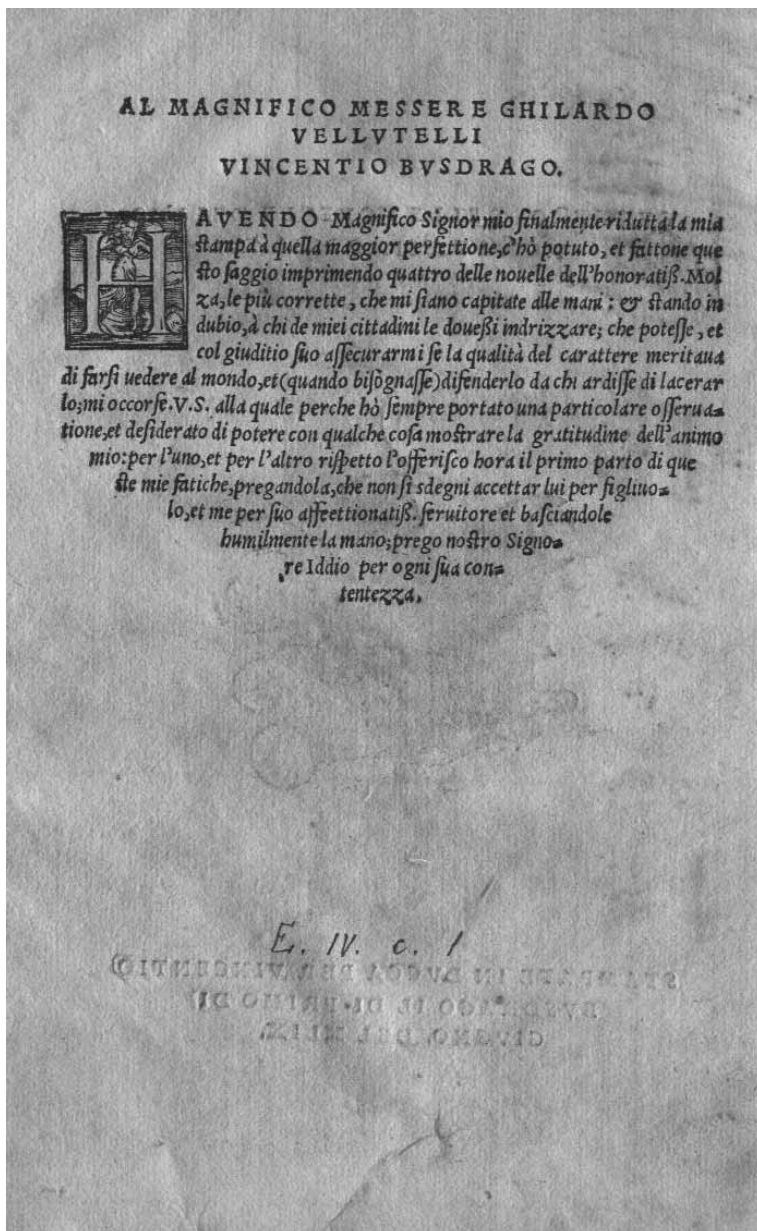 AL MAGNIFICO MESSERE GHILARDO
VELLVTELLI
VINCENTIO BVSDRAGO.
HAVENDO Magnifico Signor mio finalmente ridutta la mia
stampa à quella maggior perfettione, c'hò potuto, et fattone que
sto saggio imprimendo quattro delle nouelle dell'honoratiß. Mol
za, le più corrette, che mi siano capitate alle mani: & stando in
dubio, à chi de miei cittadini le doueßi indrizzare; che potesse, et
col giuditio suo assecurarmi se la qualità del carattere meritaua
di farsi uedere al mondo, et (quando bisògnasse) difenderlo da chi ardisse di lacerar
lo; mi occorse. V.S. alla quale perche hò sempre portato una particolare osserua=
tione, et desiderato di potere con qualche cosa mostrare la gratitudine dell'animo
mio: per l'uno, et per l'altro rispetto l'offerisco hora il primo parto di que
ste mie fatiche, pregandola, che non si sdegni accettar lui per figliuo=
lo, et me per suo affeettionatiß. seruitore et basciandole
humilmente la mano; prego nostro Signo=
re Iddio per ogni sua con=
tentezza.
E. IV. c. 1
STAMPATE IN LVCCA PER VINCENTIO
BVSDRAGO IL DI PRIMO DI
GIVGNO. DEL XLIX.